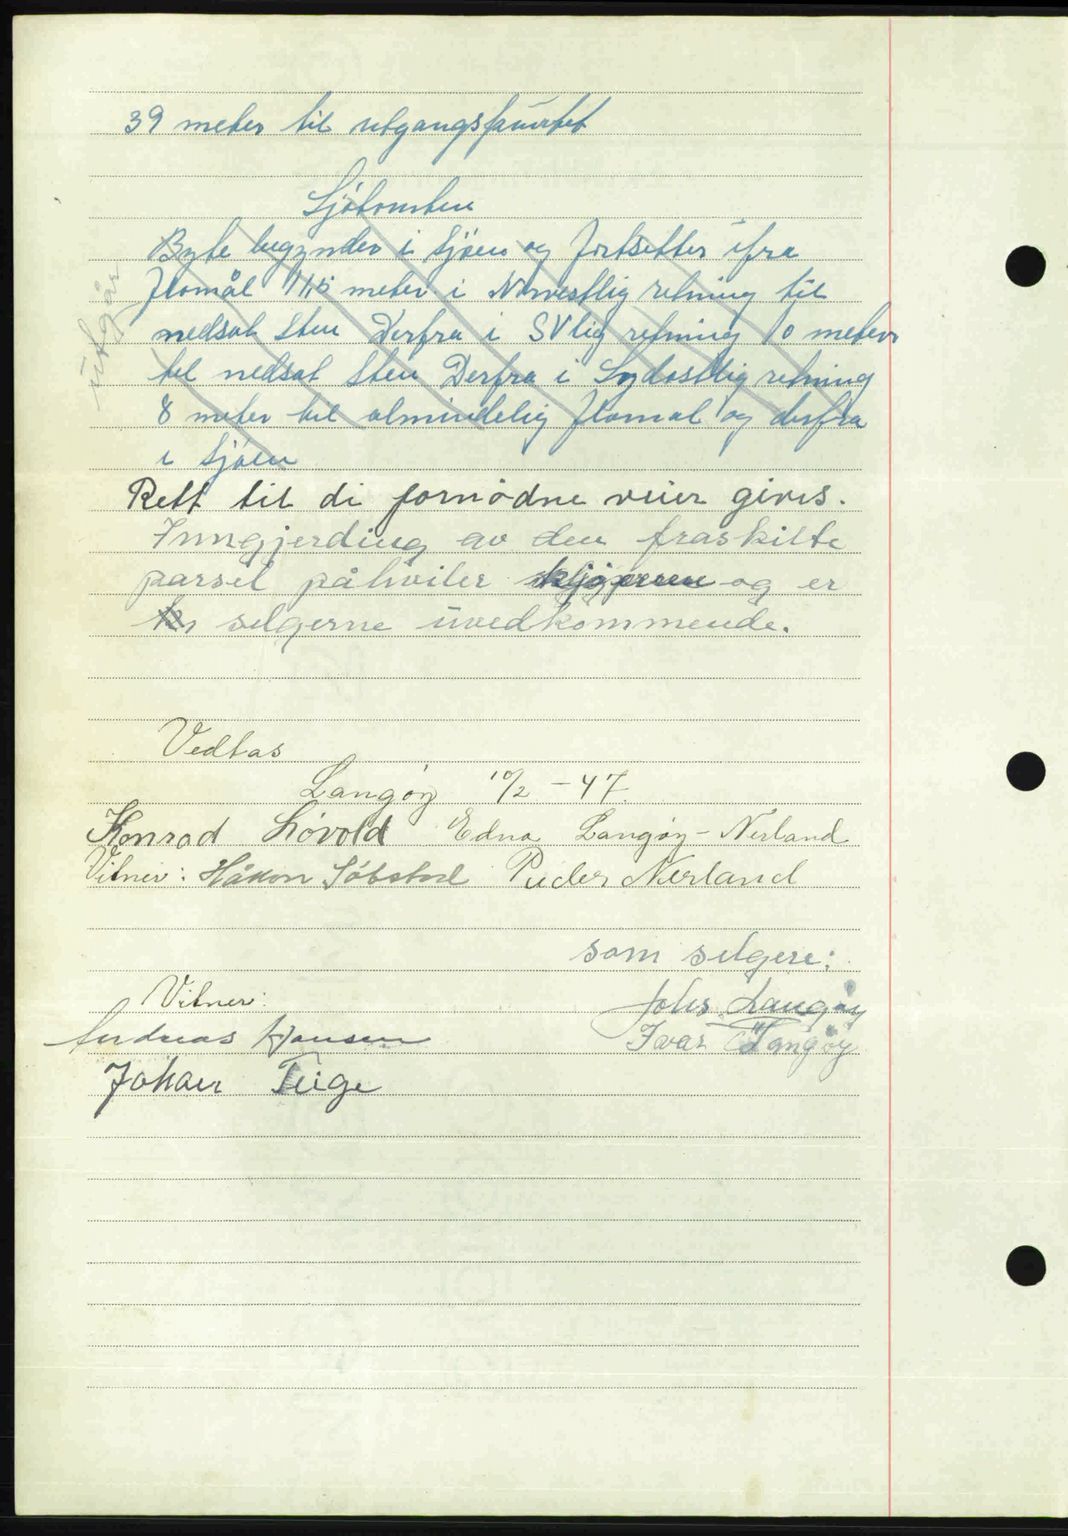 39 meter til utgangspunktet
Sjötomten
Byte begynder i Sjöen og fortsetter ifra
utgår
flomål 11,5 meter i Nrvestlig retning til
nedsat Sten Derfra i SVlig retning 10 meter
til nedsat Sten Derfra i Sydostlig retning
8 meter til almindelig flomål og derfra
i Sjöen
Rett til di fornödne veier gives.
Inngjerding av den fraskilte
parsel påhviler kjöperne og er
selgerne uvedkommende.
Vedtas
Langöy 10/2 - 47.
Konrad Lövold Edna Langöy - Nerland
Vitner: Håkon Peder Nerland
som selgere:
Vitner: Johs. Langöy
Andreas Hansen Ivar Langöy
Johan Teige